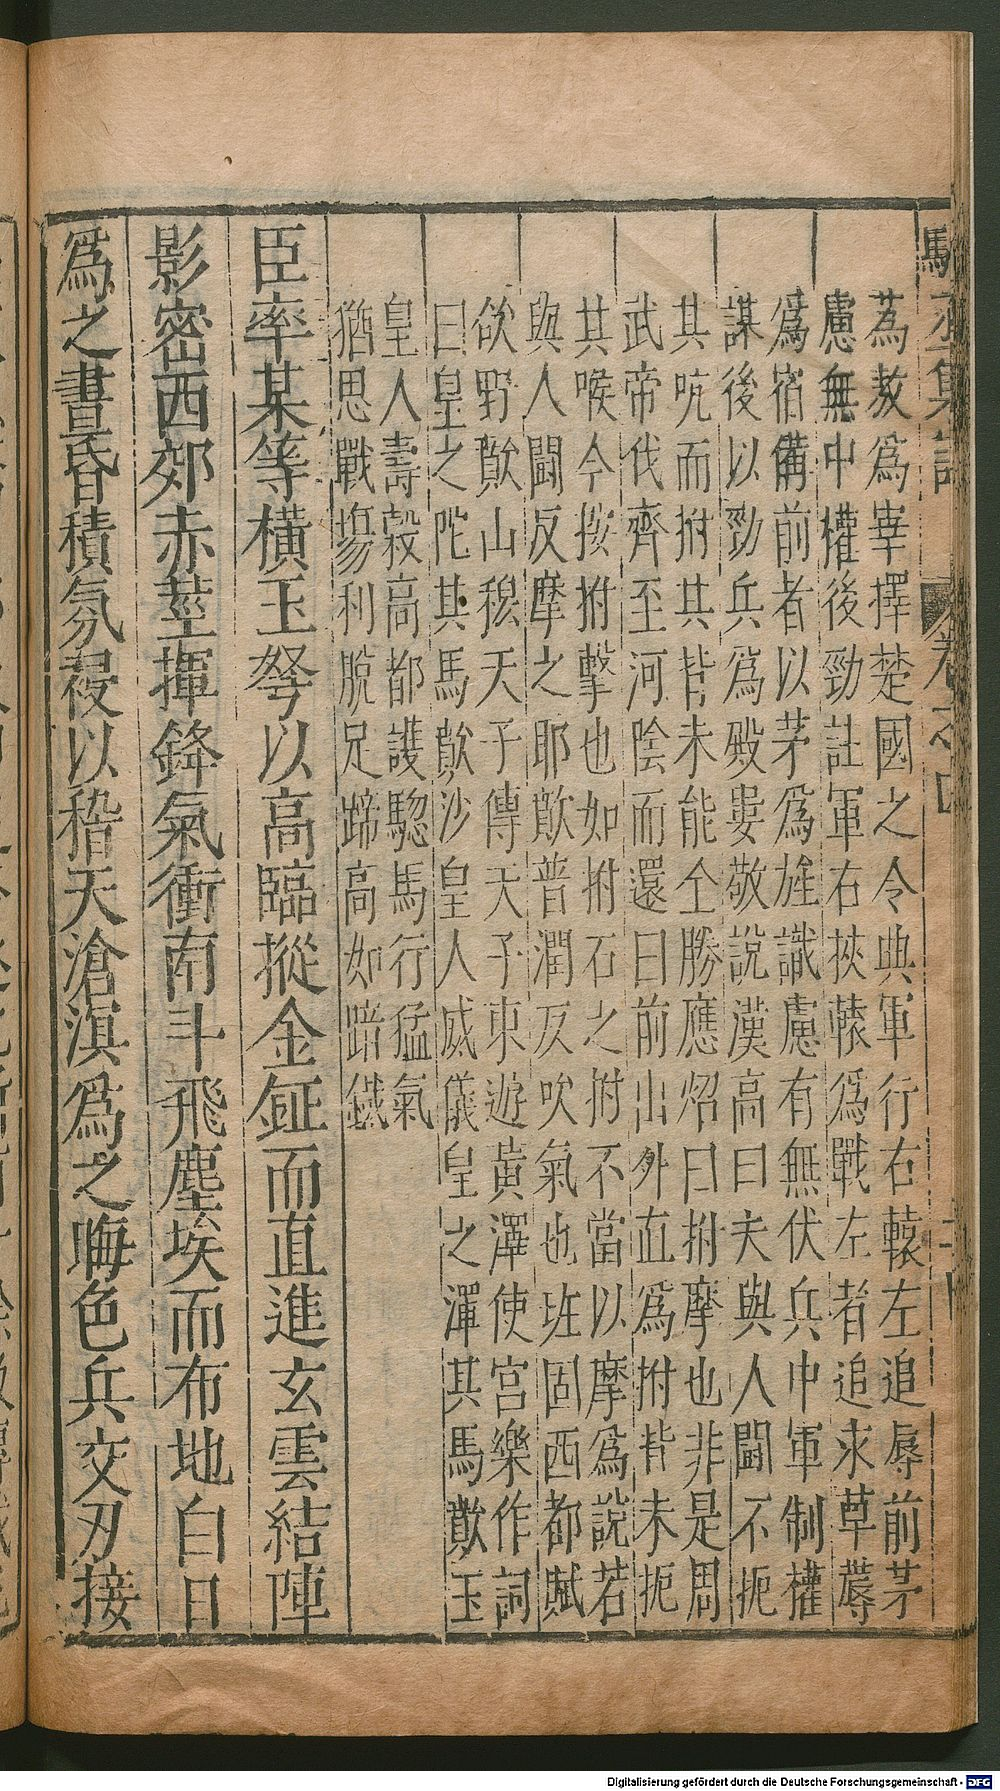 駱丞集註 卷之四
蒍敖爲宰擇楚國之令典軍行右轅左追蓐前茅
慮無中權後勁註軍右挾轅爲戰左者追求草蓐
爲宿備前者以茅爲旌識慮有無伏兵中軍制權
謀後以勁兵爲殿婁敬說漢高曰夫與人鬪不扼
其吭而拊其背未能全勝應炤曰拊摩也非是周
武帝伐齊至河陰而還曰前出外直爲拊背未扼
其喉今按拊擊也如拊石之拊不當以摩爲說若
與人鬪反摩之耶歕普潤反吹氣也班固西都賦
欲野歕山穆天子傳天子東遊黃澤使宮樂作詞
曰皇之陀其馬歕沙皇人威儀皇之澤其馬歕玉
皇人壽穀高都護驄馬行猛氣
猶思戰塲利脫足蹄高如踣鐵
臣率某等橫玉弩以高臨摐金鉦而直進玄雲結陣
影密西郊赤莖揮鋒氣衝南斗飛塵埃而布地白日
爲之晝昏積氛祲以稽天滄溟爲之晦色兵交刃接
Digitalisierung gefördert durch die Deutsche Forschungsgemeinschaft - DFG